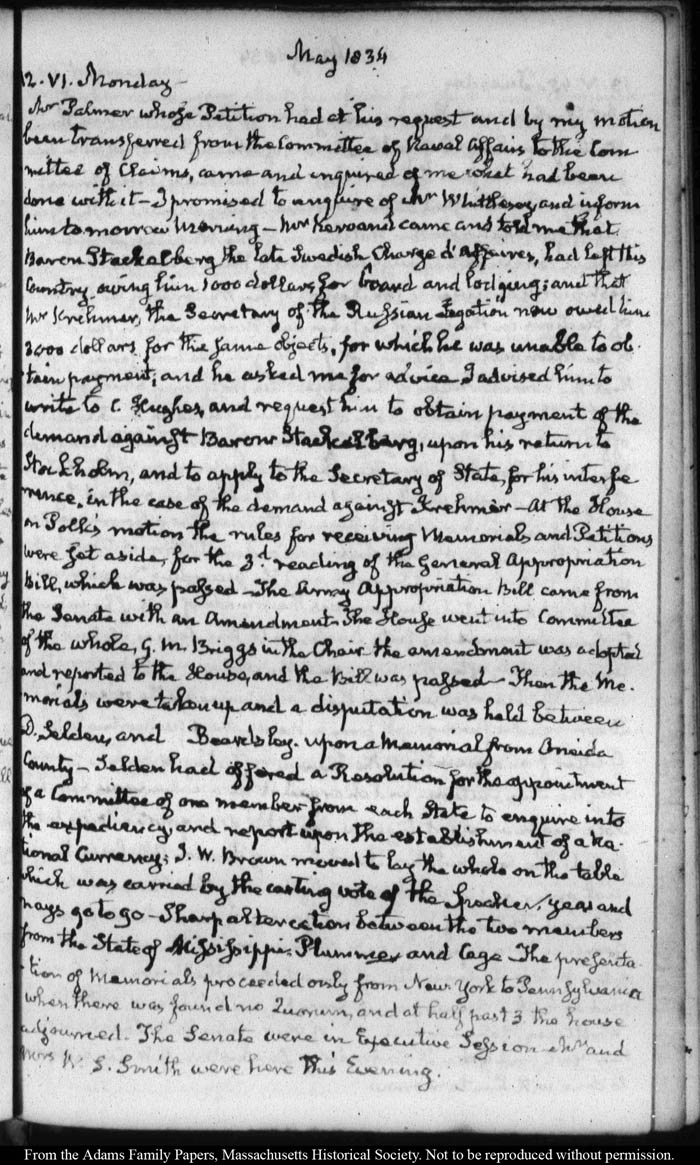 May 1834
12. VI. Monday –
Mr Palmer whose Petition had at his request and by my motion
been transferred from the Committee of Naval Affairs to the Com
mittee of Claims, came and enquired of me what had been
done with it – I promised to enquire of Mr Whittlesey and inform
him to morrow Morning – Mr Kervand came and told me that
Baron Stackelberg the late Swedish Charge d'affaires, had left this
Country owing him 1000 dollars, for board and lodging; and that
Mr Krehmer, the Secretary of the Russian Legation now owed him
3000 dollars for the same objects, for which he was unable to ob-
tain payment; and he asked me for advice I advised him to
write to C. Hughes, and request him to obtain payment of the
demand against Baron Stackelberg, upon his return to
Stockholm, and to apply to the Secretary of State, for his interfe
rence, in the case of the demand against Krehmer – At the House
on Polk's motion the rules for receiving Memorials and Petitions
were set aside, for the 3d reading of the General Appropriation
Bill, which was passed – The Army Appropriation Bill came from
the Senate with an Amendment. The House went into Committee
of the whole, G. N. Briggs in the Chair the amendment was adopted
and reported to the House, and the Bill was passed – Then the Me-
morials were taken up and a disputation was held between
D. Selden, and Beardsley. upon a Memorial from Oneida
County – Selden had offered a Resolution for the appointment
of a Committee of one member from each State to enquire into
the expediency, and report upon the establishment of a Na-
tional Currency; J. W. Brown moved to lay the whole on the table
which was carried by the casting vote of the Speaker. yeas and
nays 90 to 90 – Sharp altercation between the two members
from the State of Mississippi. Plummer and Cage – The presenta-
tion of Memorials proceeded only from New-York to Pennsylvania
when there was found no Quorum, and at half past 3 the house
adjourned. The Senate were in Executive Session – Mr and
Mrs W. S. Smith were here this Evening.
From the Adams Family Papers, Massachusetts Historical Society. Not to be reproduced without permission.